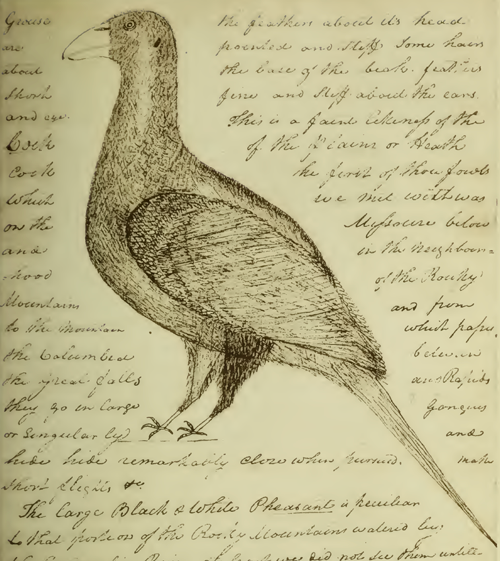 Grouse the feathers about its head
are pointed and stiff Some hairs
about the base of the beak. feathers
short fine and stiff about the ears.
and eye. This is a faint likeness of the
Cock of the Plains or Heath
Cock the first of those fowls
which we met with was
on the Missouri below
and in the neighbour=
hood of the Rocky
Mountains and from
to the mountain which pass
the Columbia between
the great falls and Rapids
they go in large Gangues
or Singularly and
hide hide remarkably close when pursued. make
short flights &c
The large Black & White Pheasant is peculiar
to that portion of the Rocky Mountains watered by
did not see them